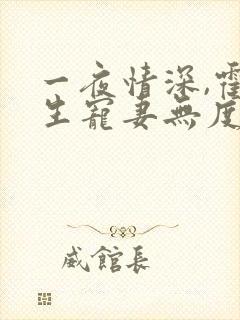 一夜情深,霍
生寵妻無度
威館長